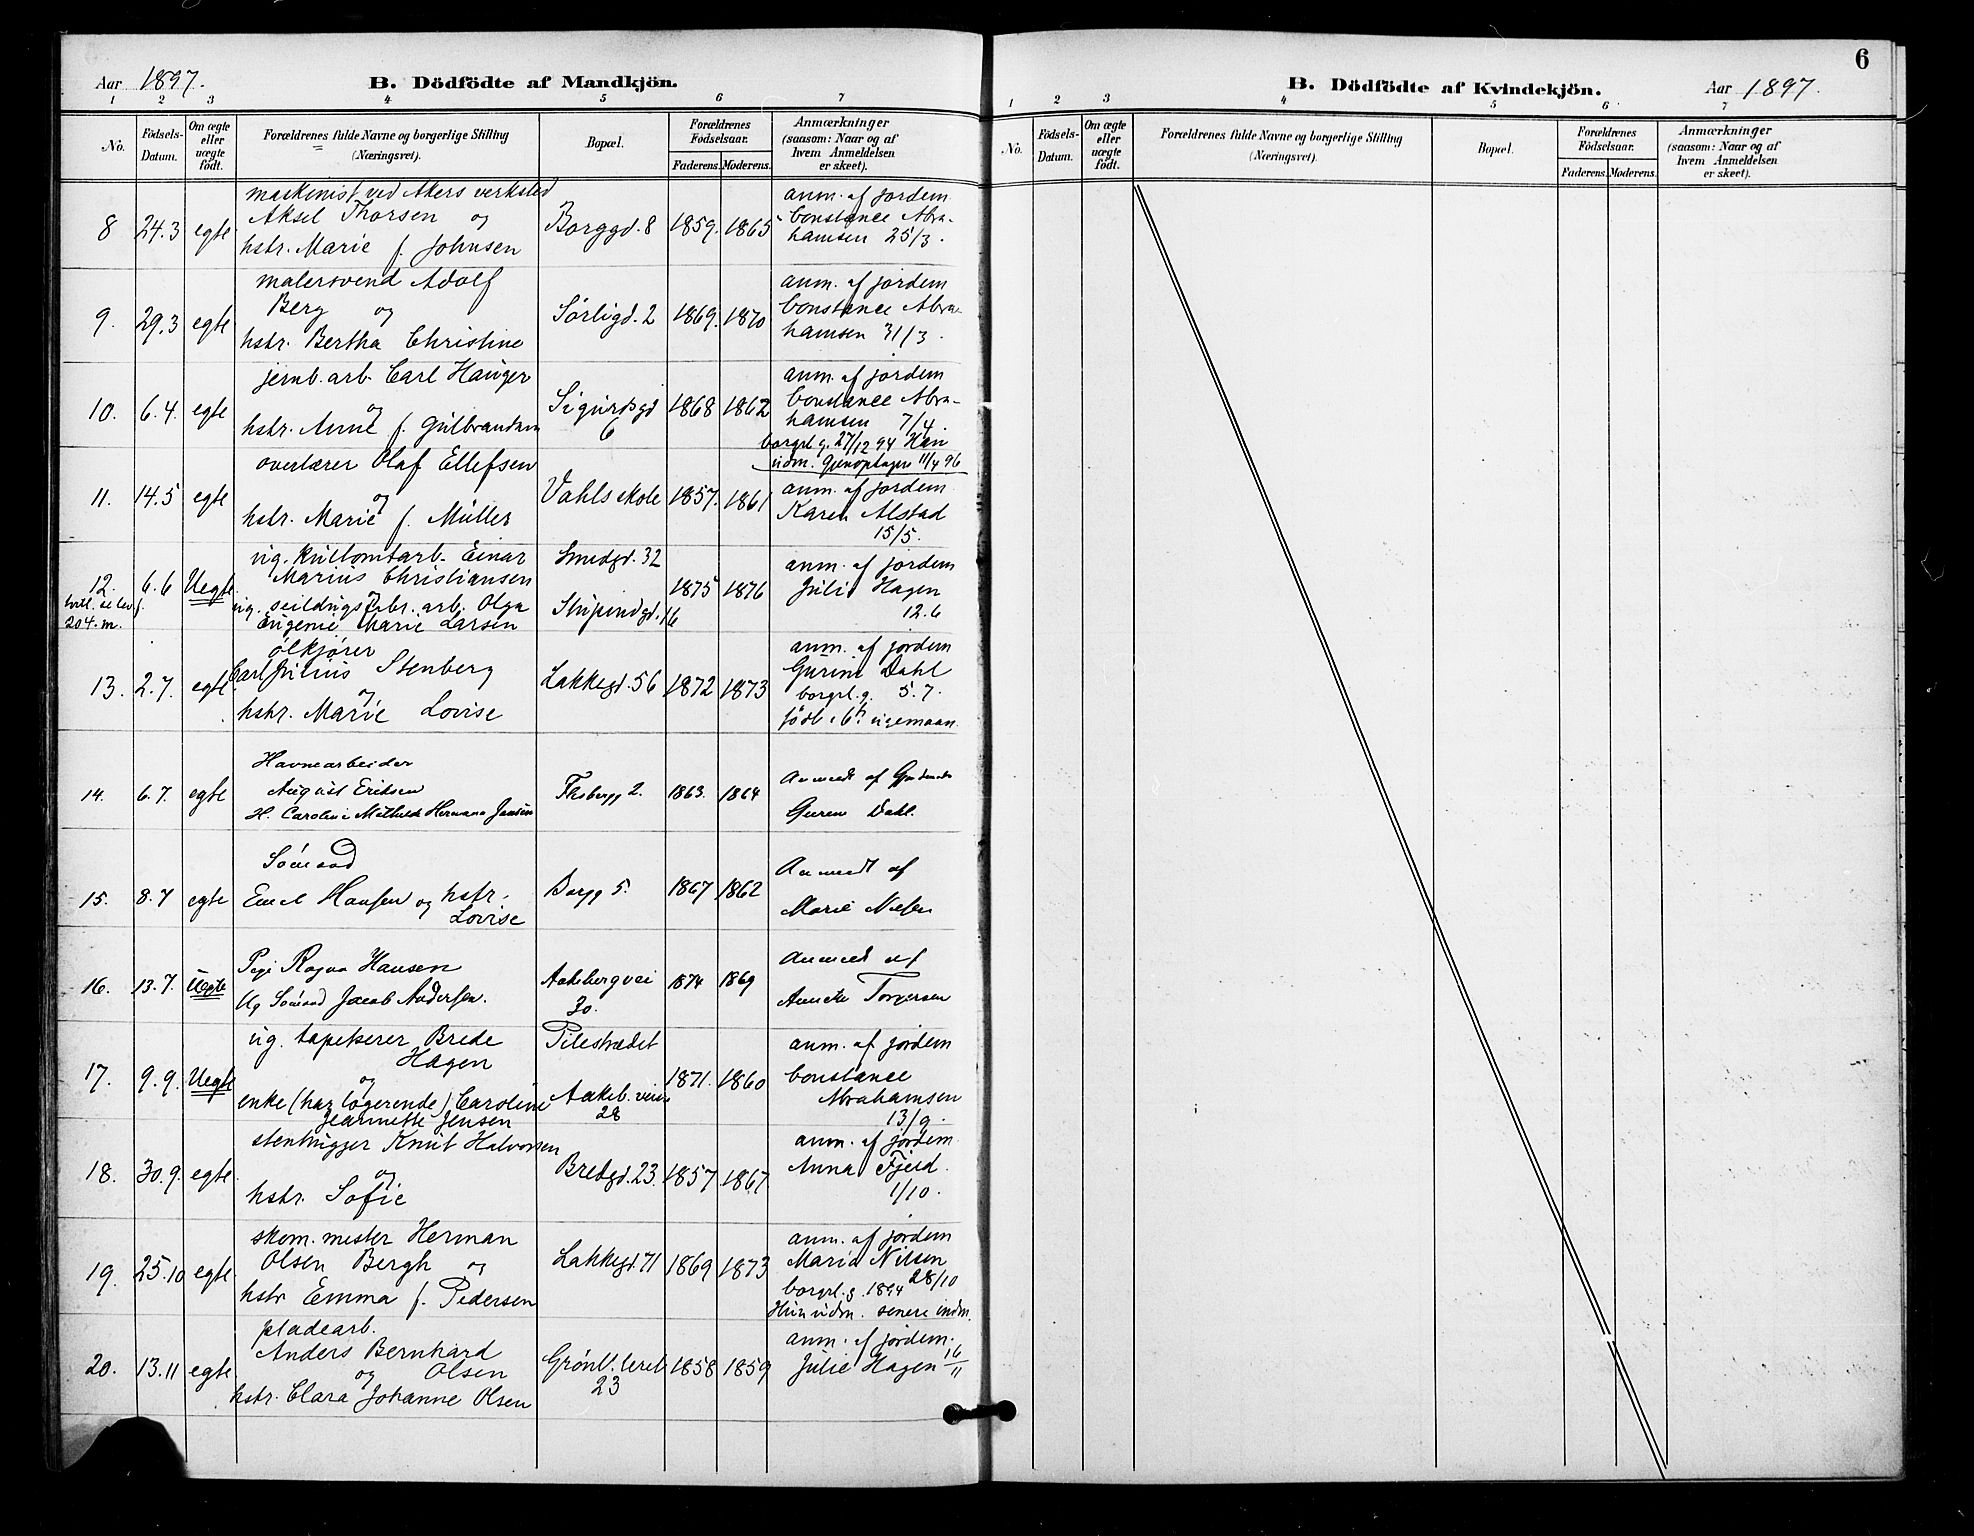 Aar 1897. B. Dödfödte af Mandkjön.
1 2 3 4 5 6 7
No. Födsels-Datum. Om ægte eller uægte født. Forældrenes fulde Navne og borgerlige Stilling (Næringsvei). Bopæl. Forældrenes Fødselsaar. Faderens. Moderens. Anmærkninger (saasom: Naar og af hvem Anmeldelsen er skeet).
maskenist ved Akers verksted
Aksel Thorsen og
8 24.3 egte Borggd. 8 1859. 1865
hstr. Marie f. Johnsen
anm. af jordem.
Constance Abra-
hamsen 25/3.
malersvend Adolf
Berg og
9. 29.3 egte Sørligd. 2 1869. 1870
hstr. Bertha Christine
anm. af jordem
Constance Abra-
hamsen 31/3.
jernb. arb. Carl Hauger
og
10. 6.4. egte Sigurdsgd 6 1868 1862
hstr. Anne f. Gulbrandsen
anm. af jordem
Constance Abra-
hamsen 7/4.
borgrl. g. 27/12 94 Han
udm. Gjenoptagen 11/4 96
overlærer Olaf Ellefsen
og
11. 14.5 egte Vahls skole 1857. 1861
hstr. Marie f. Müller
anm. af jordem.
Karen Alstad
15/5.
ug. kultomtarb. Einar
Marius Christiansen
og
12. 6.6 Uegte Smedgd. 32 1875 1876
204. m.
ug. seildugsfabr. arb. Olga
Eugenie Marie Larsen
Stupendgd. 16
anm. af jordem
Julie Hagen
12.6
ølkjører
Carl Julius Stenberg
og
13. 2.7. egte Lakkegd. 56 1872 1873
hstr. Marie Lovise
anm. af jordem
Gurine Dahl
borgrl. g. 5.7.
Havnearbeider
August Eriksen
14. 6.7. egte 2. 1863. 1864
H. Caroline Mathilde Hermana Jansen
Anmeldt af
Gurine Dahl.
Sömand
15. 8.7 egte Borgg 5. 1867 1862
Emil Hansen og hstr.
Lovise
Anmeldt af
Marie Nilsen
Pige Ragna Hansen
16. 13.7. Uegte Aakebergvei 30. 1874 1869
Ug Sömand Jacob Andersen.
Anmeldt af
Annette Torgersen
ug. tapetserer Brede
Hagen
og
17. 9.9. Uegte Pilestrædet 1871. 1860
enke (har logerende) Caroline
Jeannette Jensen
Aakeb. veien
28
anm. af jordem
Constance
Abrahamsen
13/9.
stenhugger Knut Halvorsen
og
18. 30.9. egte. Bredgd. 23. 1857 1867
hstr. Sofie
anm. af jordem.
Anna Fjeld.
1/10.
skom. mester Herman
Olsen Bergh og
19. 25.10 egte Lakkegd. 71 1869 1873
hstr Emma f. Pedersen
anm. af jordem
Maria Nilsen
28/10
borgrl. g. 1894
Hun udm. senere indm.
pladearb.
Anders Bernhard
og Olsen
20. 13.11 egte Grönl. leret 23 1858 1859
hstr. Clara Johanne Olsen
anm. af jordem.
Julie Hagen 16/11
6
B. Dödfödte af Kvindekjön. Aar 1897.
1 2 3 4 5 6 7
No. Födsels-Datum. Om ægte eller uægte født. Forældrenes fulde Navne og borgerlige Stilling (Næringsvei). Bopæl. Forældrenes Fødselsaar. Faderens. Moderens. Anmærkninger (saasom: Naar og af hvem Anmeldelsen er skeet).